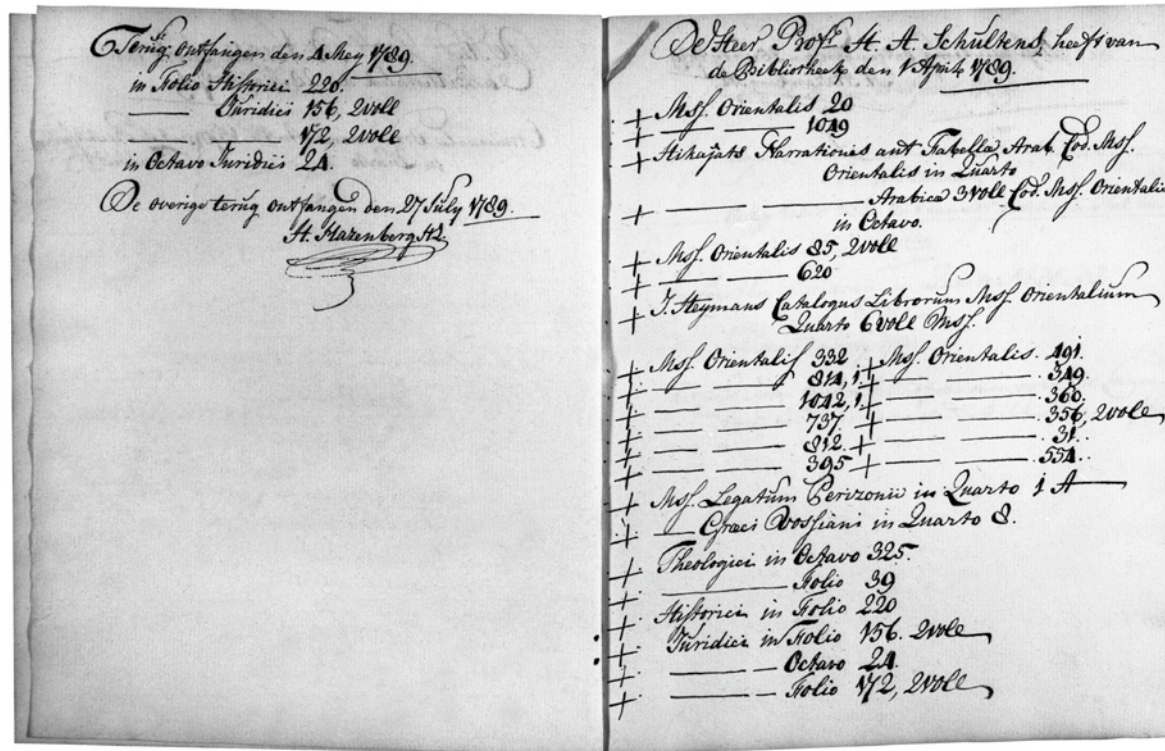 Terug ontfangen den 4 Mey 1789.
in Folio Historici 220.
—— Juridici 156, 2voll
—— 172, 2voll
in Octavo Juridici 24.
De overige terug ontfangen den 27 July 1789.
H. Hazenberg Hz.
De Heer Profr. H. A. Schultens, heeft van
de Bibliotheek den 1 April 1789.
+ Mss. Orientalis 20
+ —— —— 1049
+ Hikajats Narrationis aut Fabella Arab. Cod. Mss.
Orientalis in Quarto
+ —— —— —— Arabica 3 voll Cod. Mss. Orientalis
in Octavo.
+ Mss. Orientalis 85, 2voll
+ —— —— 620
+ J. Heymans Catalogus Librorum Mss. Orientalium
Quarto 6 voll Mss.
+ Mss. Orientalis 332 + Mss. Orientalis. 491.
+ —— —— 814, 1. + —— —— 349.
+ —— —— 1042, 1 + —— —— 360.
+ —— —— 737 + —— —— 356, 2voll
+ —— —— 812. + —— —— 31.
+ —— —— 395 + —— —— 554.
+ Mss. Legatum Perizonii in Quarto 1 A
+ —— Graeci Vossiani in Quarto 8.
+ Theologici in Octavo 325.
+ —— Folio 39
+ Historici in Folio 220
+ Juridici in Folio 156. 2voll
+ —— — Octavo 24.
+ —— — Folio 172, 2voll